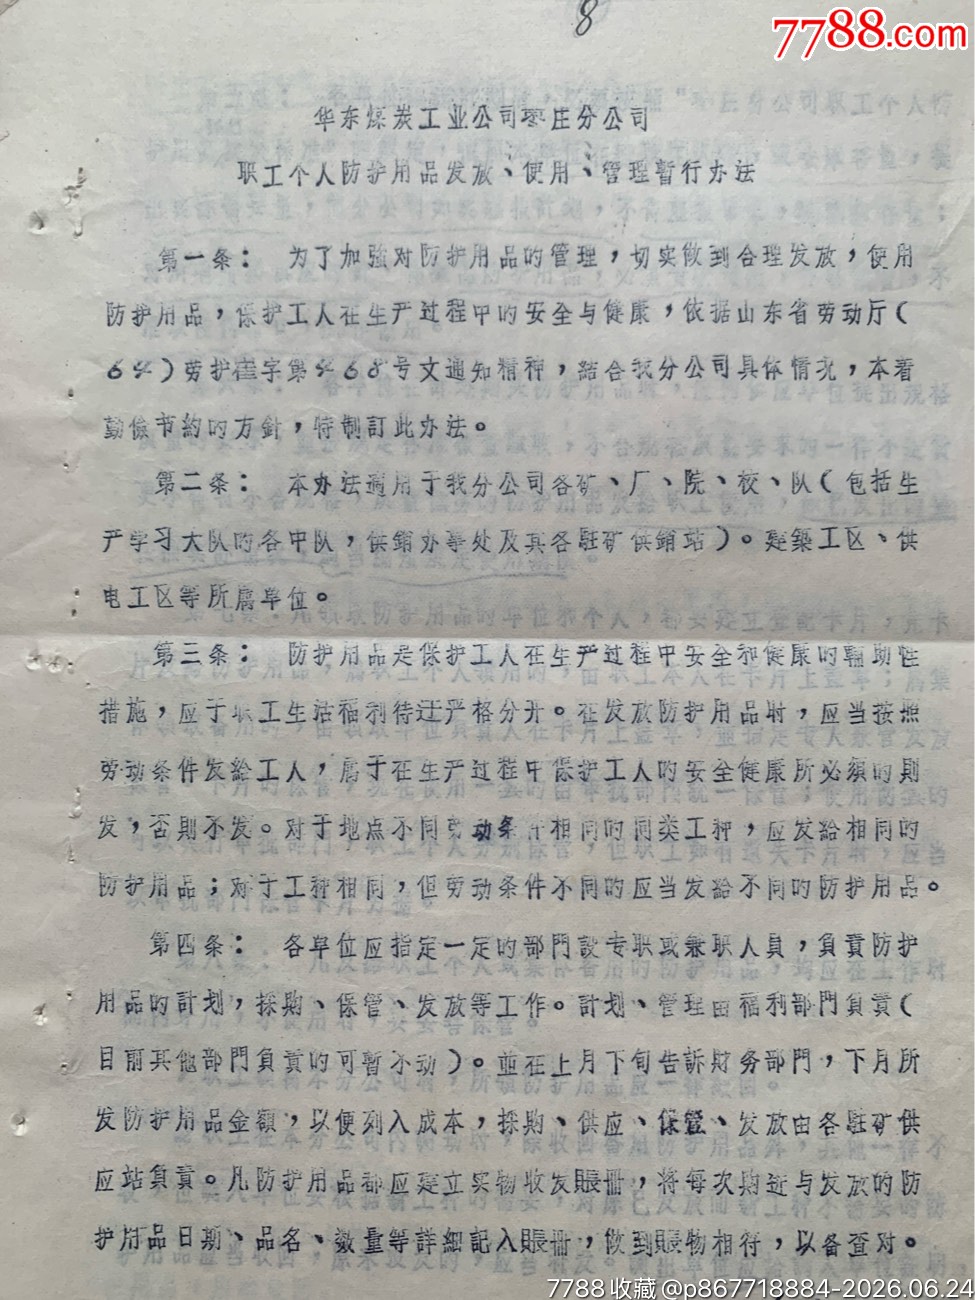 8
7788.com
华东煤炭工业公司枣庄分公司
职工个人防护用品发放、使用、管理暂行办法
第一条：为了加強对防护用品的管理，切实做到合理发放，使用
防护用品，保护工人在生产过程中的安全与健康，依据山东省劳动厅（
64）劳护崔字第468号文通知精神，結合我分公司具体情况，本着
勤儉节約的方針，特制訂此办法。
第二条：本办法适用于我分公司各矿、厂、院、校、队（包括生
产学习大队的各中队，供銷办事处及其各駐矿供銷站）。建築工区、供
电工区等所属单位。
第三条：防护用品是保护工人在生产过程中安全和健康的輔助性
措施，应于职工生活福利待迂严格分开。在发放防护用品时，应当按照
劳动条件发給工人，属于在生产过程中保护工人的安全健康所必須的則
发，否則不发。对于地点不同劳动条件相同的同类工种，应发給相同的
防护用品；对于工种相同，但劳动条件不同的应当发給不同的防护用品。
第四条：各单位应指定一定的部門設专职或兼职人員，負責防护
用品的計划，採购、保管、发放等工作。計划、管理由福利部門負責（
目前其他部門負責的可暫不动）。並在上月下旬告訴財务部門，下月所
发防护用品金額，以便列入成本，採购、供应、保管、发放由各駐矿供
应站負責。凡防护用品都应建立实物收发賬冊，将每次购进与发放的防
护用品日期、品名、数量等詳細記入賬冊，做到賬物相行，以备查对。
7788收藏@p867718884-2026.06.24